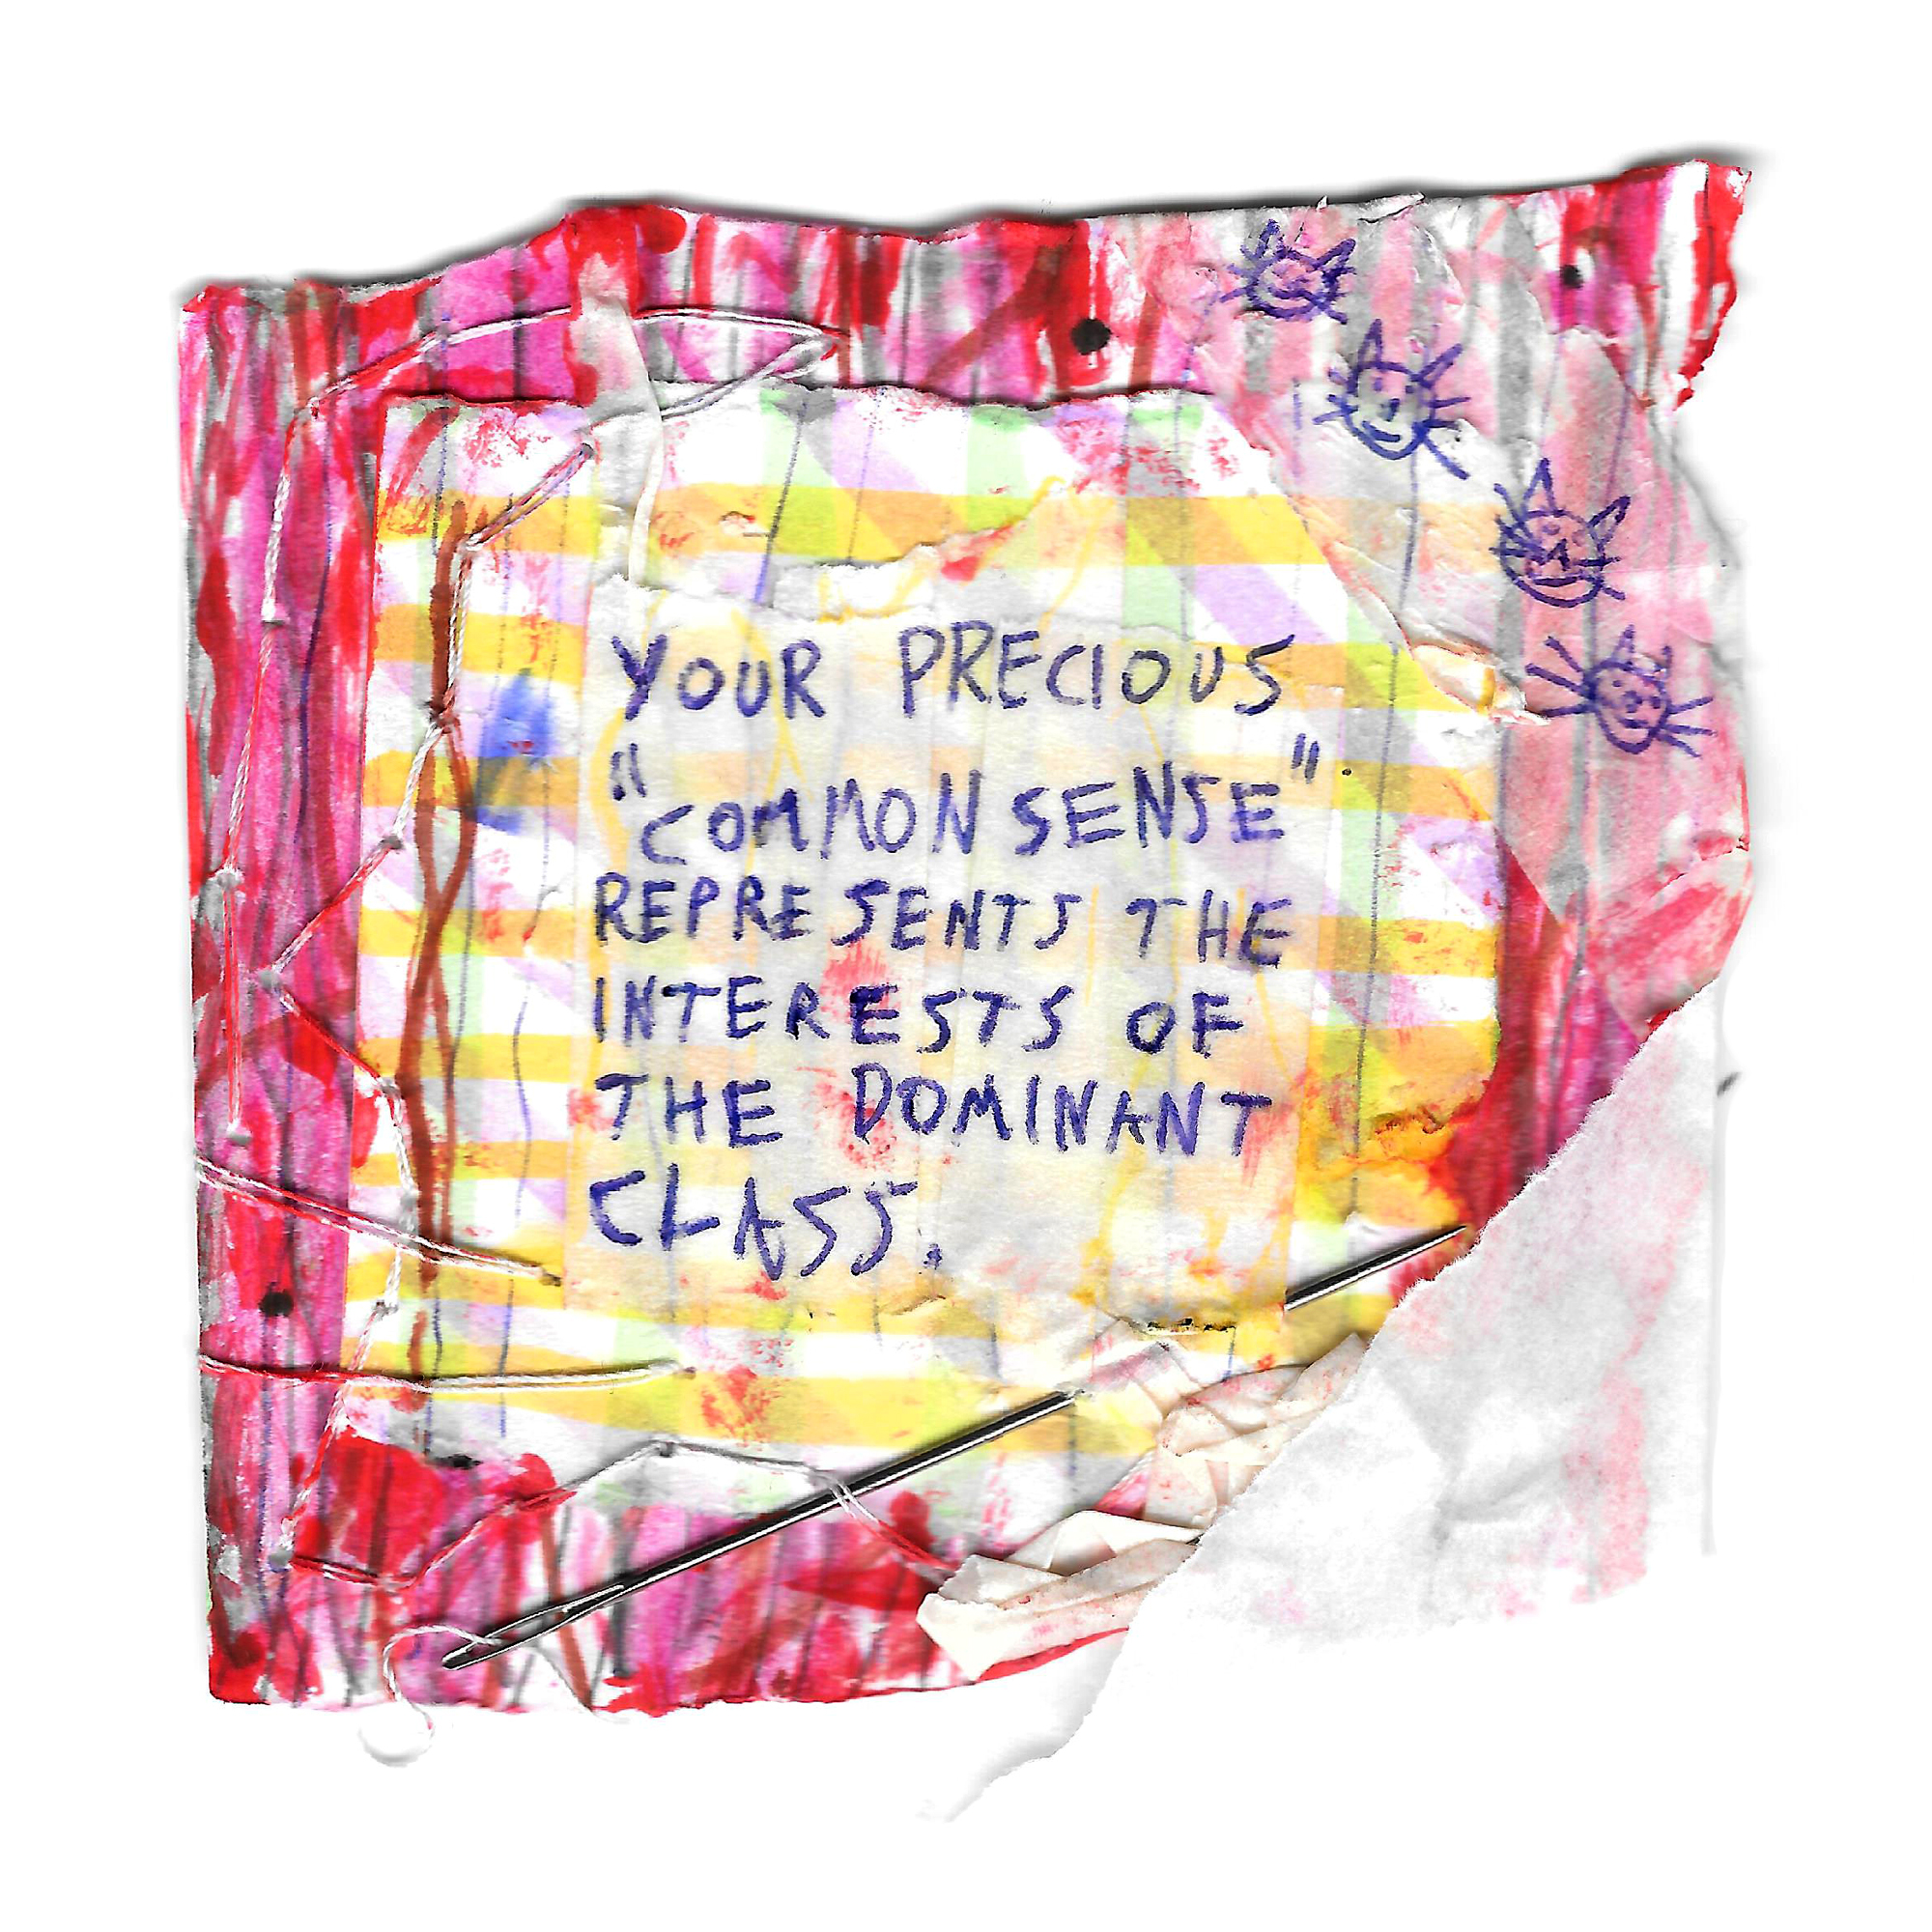 YOUR PRECIOUS
"COMMON SENSE"
REPRESENTS THE
INTERESTS OF
THE DOMINANT
CLASS.